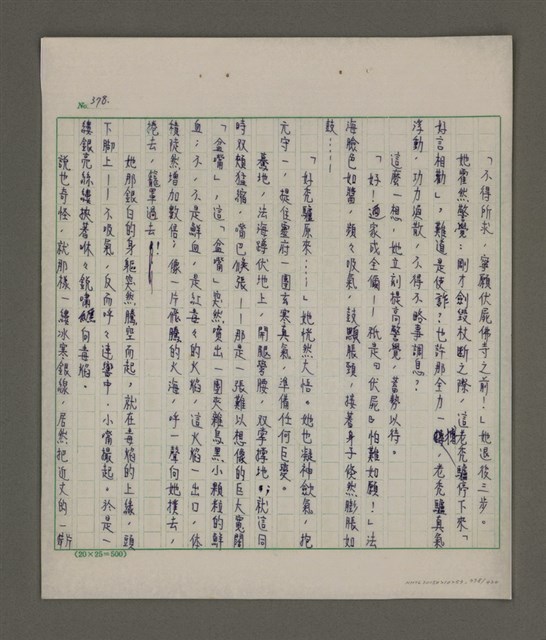 No. 378.
「不得所求，寧願伏屍佛寺之前！」她退後三步。
她霍然警覺：剛才劍毀杖斷之際，這老禿驢停下來「
好言相勸」，難道是使詐？也許那全力一搏，老禿驢真氣
浮動，功力渙散，不得不略事調息？
這麼一想，她立刻提高警覺，蓄勢以待。
「好！適家成全個——祇是『伏屍』怕難如願！」法
海臉色如醬，頻々吸氣，鼓顋脹頸，接著身子倏然膨脹如
鼓……
「好禿驢原來……」她恍然大悟。她也凝神斂氣，抱
元守一，提住靈府一團玄寒真氣，準備任何巨變。
驀地，法海蹲伏地上，開腿彎腰，双掌撐地，就這同
時双頰猛縮，嘴巴倏張——那是一張難以想像的巨大寬闊
「盆嘴」，這「盆嘴」突然噴出一團夾雜烏黑小顆粒的鮮
血；不，不是鮮血，是紅毒々的火焰，這火焰一出口，体
積徒然增加數倍，像一片飛騰的火海，呼一聲向她撲去，
捲去，籠罩過去！！
她那銀白的身軀突然騰空而起，就在毒焰的上緣，頭
下腳上——不吸氣，反而呼々連響中，小嘴撮起。於是一
縷銀亮絲縷挾著咻々銳嘯纏向毒焰。
說也奇怪，就那樣一縷冰寒銀線，居然把近丈的一片
(20×25=500)